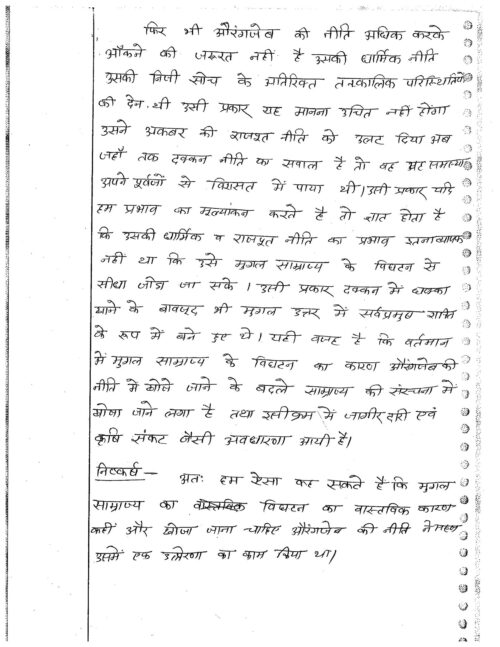 फिर भी औरंगजेब की नीति अधिक करके
आँकने की जरूरत नहीं है उसकी धार्मिक नीति
उसकी निजी सोच के अतिरिक्त तत्कालिक परिस्थितियों
की देन थी उसी प्रकार यह मानना उचित नहीं होगा
उसने अकबर की राजपूत नीति को उलट दिया अब
जहाँ तक दक्कन नीति का सवाल है तो वह यह समस्या
अपने पूर्वजों से विरासत में पाया थी। उसी प्रकार यदि
हम प्रभाव का मूल्यांकन करते है तो ज्ञात होता है
कि उसकी धार्मिक व राजपूत नीति का प्रभाव इतना व्यापक
नहीं था कि उसे मुगल साम्राज्य के विघटन से
सीधा जोड़ा जा सके। उसी प्रकार दक्कन में धक्का
खाने के बावजूद भी मुगल उत्तर में सर्वप्रमुख शक्ति
के रूप में बने हुए थे। यही वजह है कि वर्तमान
में मुगल साम्राज्य के विघटन का कारण औरंगजेब की
नीति में खोजे जाने के बदले साम्राज्य की संरचना में
खोजा जाने लगा है तथा इसी क्रम में जागीरदारी एवं
कृषि संकट जैसी अवधारणा आयी है।
निष्कर्ष — अतः हम ऐसा कह सकते है कि मुगल
साम्राज्य का विघटन का वास्तविक कारण
कहीं और खोजा जाना चाहिए औरंगजेब की नीति ने महज
उसमें एक उत्प्रेरणा का काम किया था।